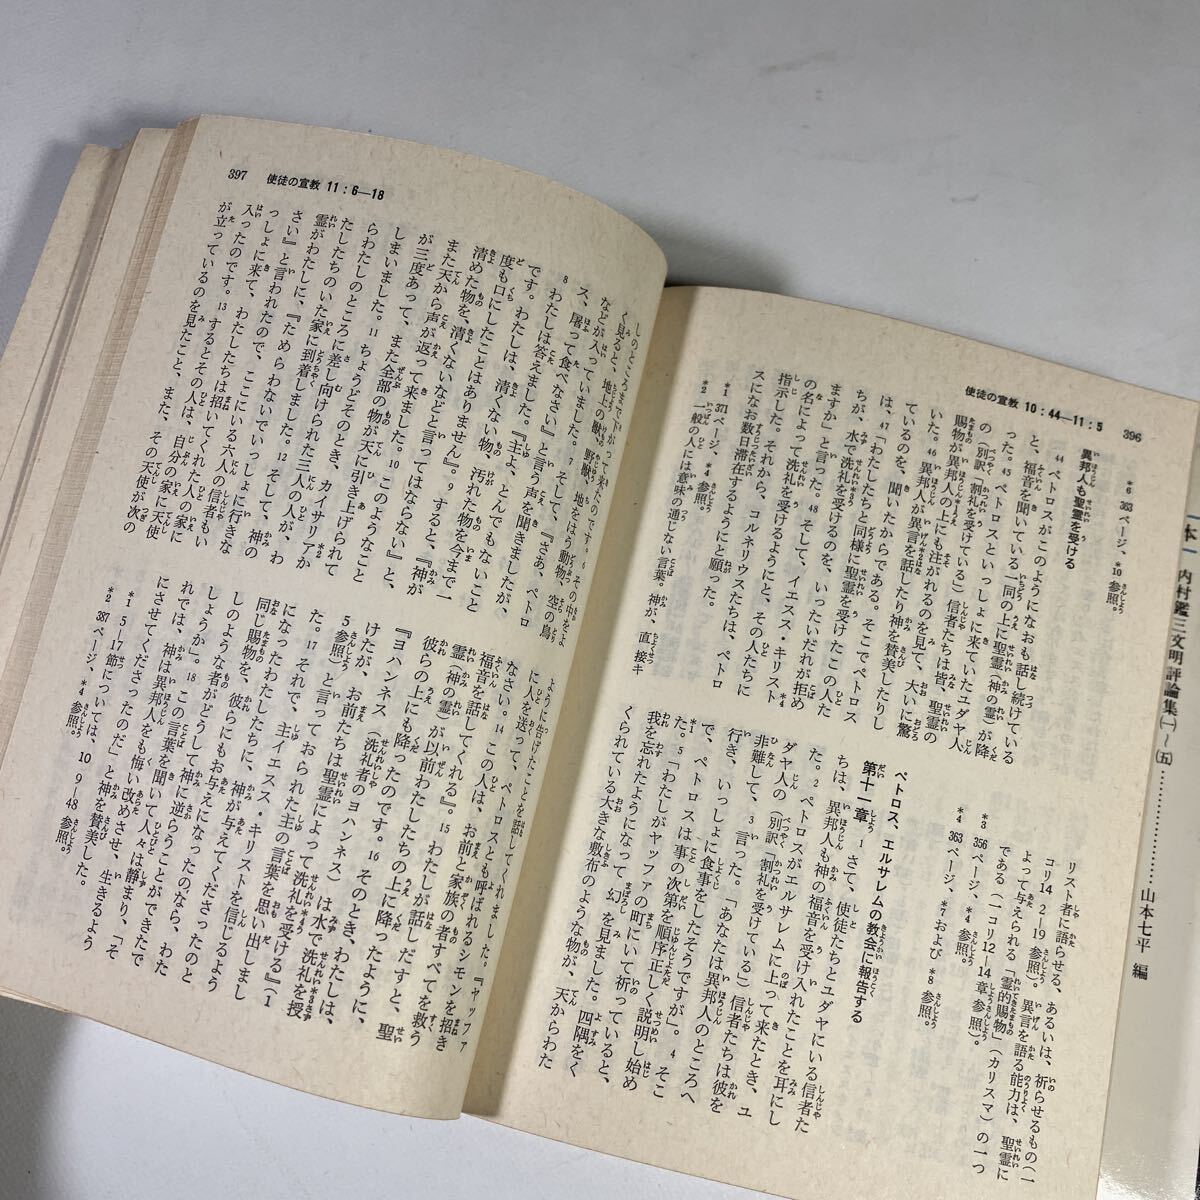 396
使徒の宣教 10：44—11：5
*6 363ページ、*10参照。
異邦人も聖霊を受ける
44 ペトロスがこのようになおも話し続けている
と、福音を聞いている一同の上に聖霊（神の霊）が降
った。45 ペトロスといっしょに来ていたユダヤ人
の（別訳「割礼を受けている」）信者たちは皆、聖霊の
賜物が異邦人の上にも注がれるのを見て、大いに驚
いた。46 異邦人が異言を話したり神を賛美したりし
ているのを、聞いたからである。そこでペトロス
は、47「わたしたちと同様に聖霊を受けたこの人た
ちが、水で洗礼を受けるのを、いったいだれが拒め
ますか」と言った。48 そして、イエスス・キリスト
の名によって洗礼を受けるようにと、その人たちに
指示した。それから、コルネリウスたちは、ペトロ
スになお数日滞在するようにと願った。
*1 371ページ、*4参照。
*2 一般の人には意味の通じない言葉。神が、直接キ
リスト者に語らせる、あるいは、祈らせるもの（一
コリ14 2–19参照）。異言を語る能力は、聖霊に
よって与えられる「霊的賜物」（カリスマ）の一つ
である（一コリ12–14章参照）。
*3 356ページ、*4参照。
*4 363ページ、*7および*8参照。
ペトロス、エルサレムの教会に報告する
第十一章 1 さて、使徒たちとユダヤにいる信者た
ちは、異邦人も神の福音を受け入れたことを耳にし
た。2 ペトロスがエルサレムに上って来たとき、ユ
ダヤ人の（別訳「割礼を受けている」）信者たちは彼を
非難して、3 言った。「あなたは異邦人のところへ
行き、いっしょに食事をしたそうですが」。4 そこ
で、ペトロスは事の次第を順序正しく説明し始め
た。5「わたしがヤッファの町にいて祈っていると、
我を忘れたようになって幻を見ました。四隅をく
くられている大きな敷布のような物が、天からわた
397
使徒の宣教 11：6—18
しのところまで下がって来たのです。6 その中をよ
く見ると、地上の獣、野獣、地をはう動物、空の鳥
などが入っていました。7 そして、『さあ、ペトロ
ス、屠って食べなさい』と言う声を聞きましたが、
8 わたしは答えました。『主よ、とんでもないこと
です。わたしは、清くない物、汚れた物を今まで一
度も口にしたことはありません』。9 すると、『神が
清めた物を、清くないなどと言ってはならない』と、
また天から声が返って来ました。10 このようなこと
が三度あって、また全部の物が天に引き上げられて
しまいました。11 ちょうどそのとき、カイサリアか
らわたしのところに差し向けられた三人の人が、わ
たしたちのいた家に到着しました。12 そして、神の
霊がわたしに、『ためらわないでいっしょに行きな
さい』と言われたので、ここにいる六人の信者もい
っしょに来て、わたしたちは招いてくれた人の家に
入ったのです。13 するとその人は、自分の家に天使
が立っているのを見たこと、また、その天使が次の
ように告げたことを話してくれました。『ヤッファ
に人を送って、ペトロスとも呼ばれるシモンを招き
なさい。14 この人は、お前と家族の者すべてを救う
福音を話してくれる』。15 わたしが話しだすと、聖
霊（神の霊）が以前わたしたちの上に降ったように、
彼らの上にも降ったのです。16 そのとき、わたしは、
『ヨハンネス（洗礼者のヨハンネス）は水で洗礼を授
けたが、お前たちは聖霊によって洗礼を受ける』（1
5参照）と言っておられた主の言葉を思い出しまし
た。17 それで、主イエスス・キリストを信じるよう
になったわたしたちに、神が与えてくださったのと
同じ賜物を、彼らにもお与えになったのなら、わた
しのような者がどうして神に逆らうことができたで
しょうか」。18 この言葉を聞いて人々は静まり、「そ
れでは、神は異邦人をも悔い改めさせ、生きるよう
にさせてくださったのだ」と神を賛美した。
*1 5–17節については、10 9–48参照。
*2 387ページ、*4参照。
内村鑑三文明評論集（一）～（五）…………山本七平 編